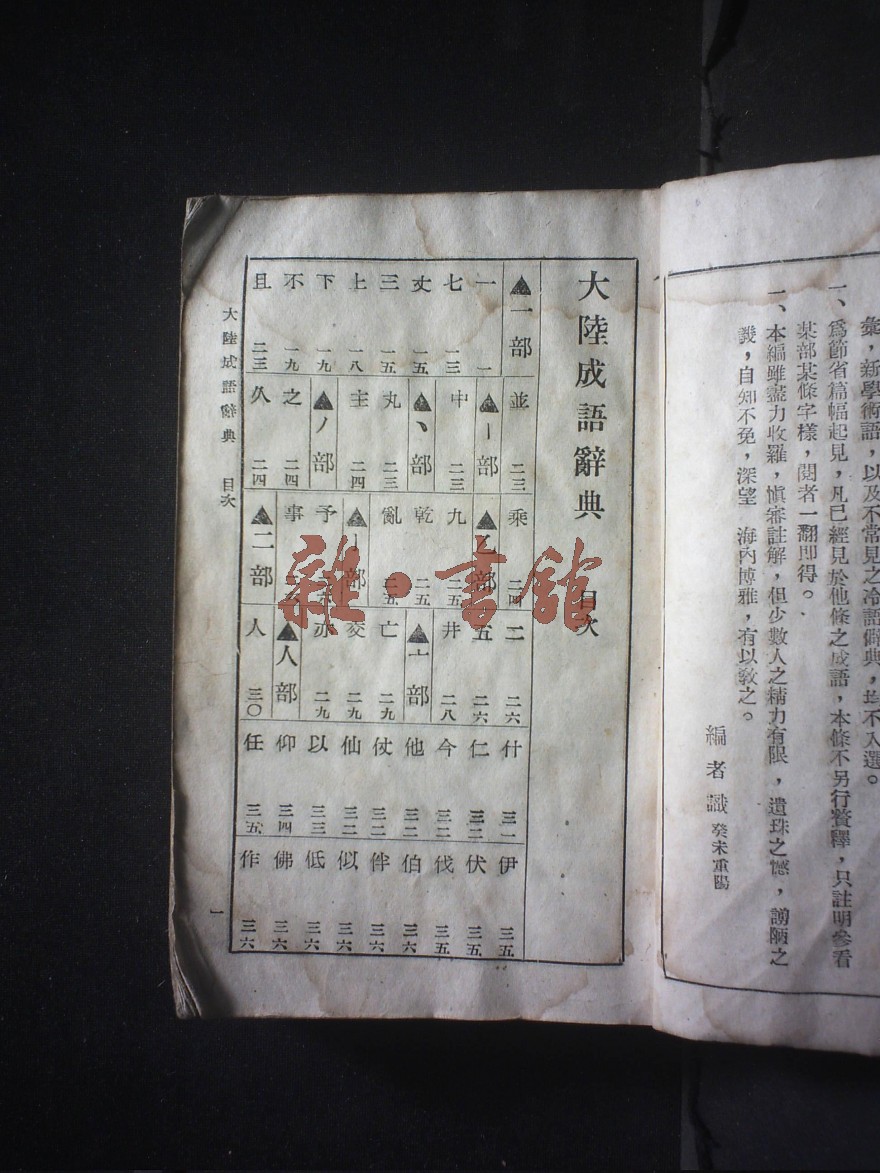 彙，新學術語，以及不常見之冷語僻典，均不入選。
一、爲節省篇幅起見，凡已經見於他條之成語，本條不另行贅釋，只註明參看
某部某條字樣，閱者一翻即得。
一、本編雖盡力收羅，愼審註解，但少數人之精力有限，遺珠之憾，謭陋之
譏，自知不免，深望　海內博雅，有以敎之。
編者識 癸未重陽
大陸成語辭典　目次
▲一部
一 一
七 一三
丈 一五
三 一五
上 一八
下 一九
不 一九
且 二三
並 二三
▲丨部
中 二三
▲丶部
丸 二三
主 二四
▲丿部
之 二四
久 二四
乘 二四
▲乙部
九 二五
乾 二五
亂 二五
▲亅部
予
事
▲二部
二 二六
五 二六
井 二八
▲亠部
亡 二九
亥 二九
亦 二九
▲人部
人 三〇
什 三一
仁 三二
今 三二
他 三二
仗 三二
仙 三二
以 三三
仰 三四
任 三五
伊 三五
伏 三五
伐 三五
伯 三六
伴 三六
似 三六
低 三六
佛 三六
作 三六
大陸成語辭典　目次
一
雜·書館